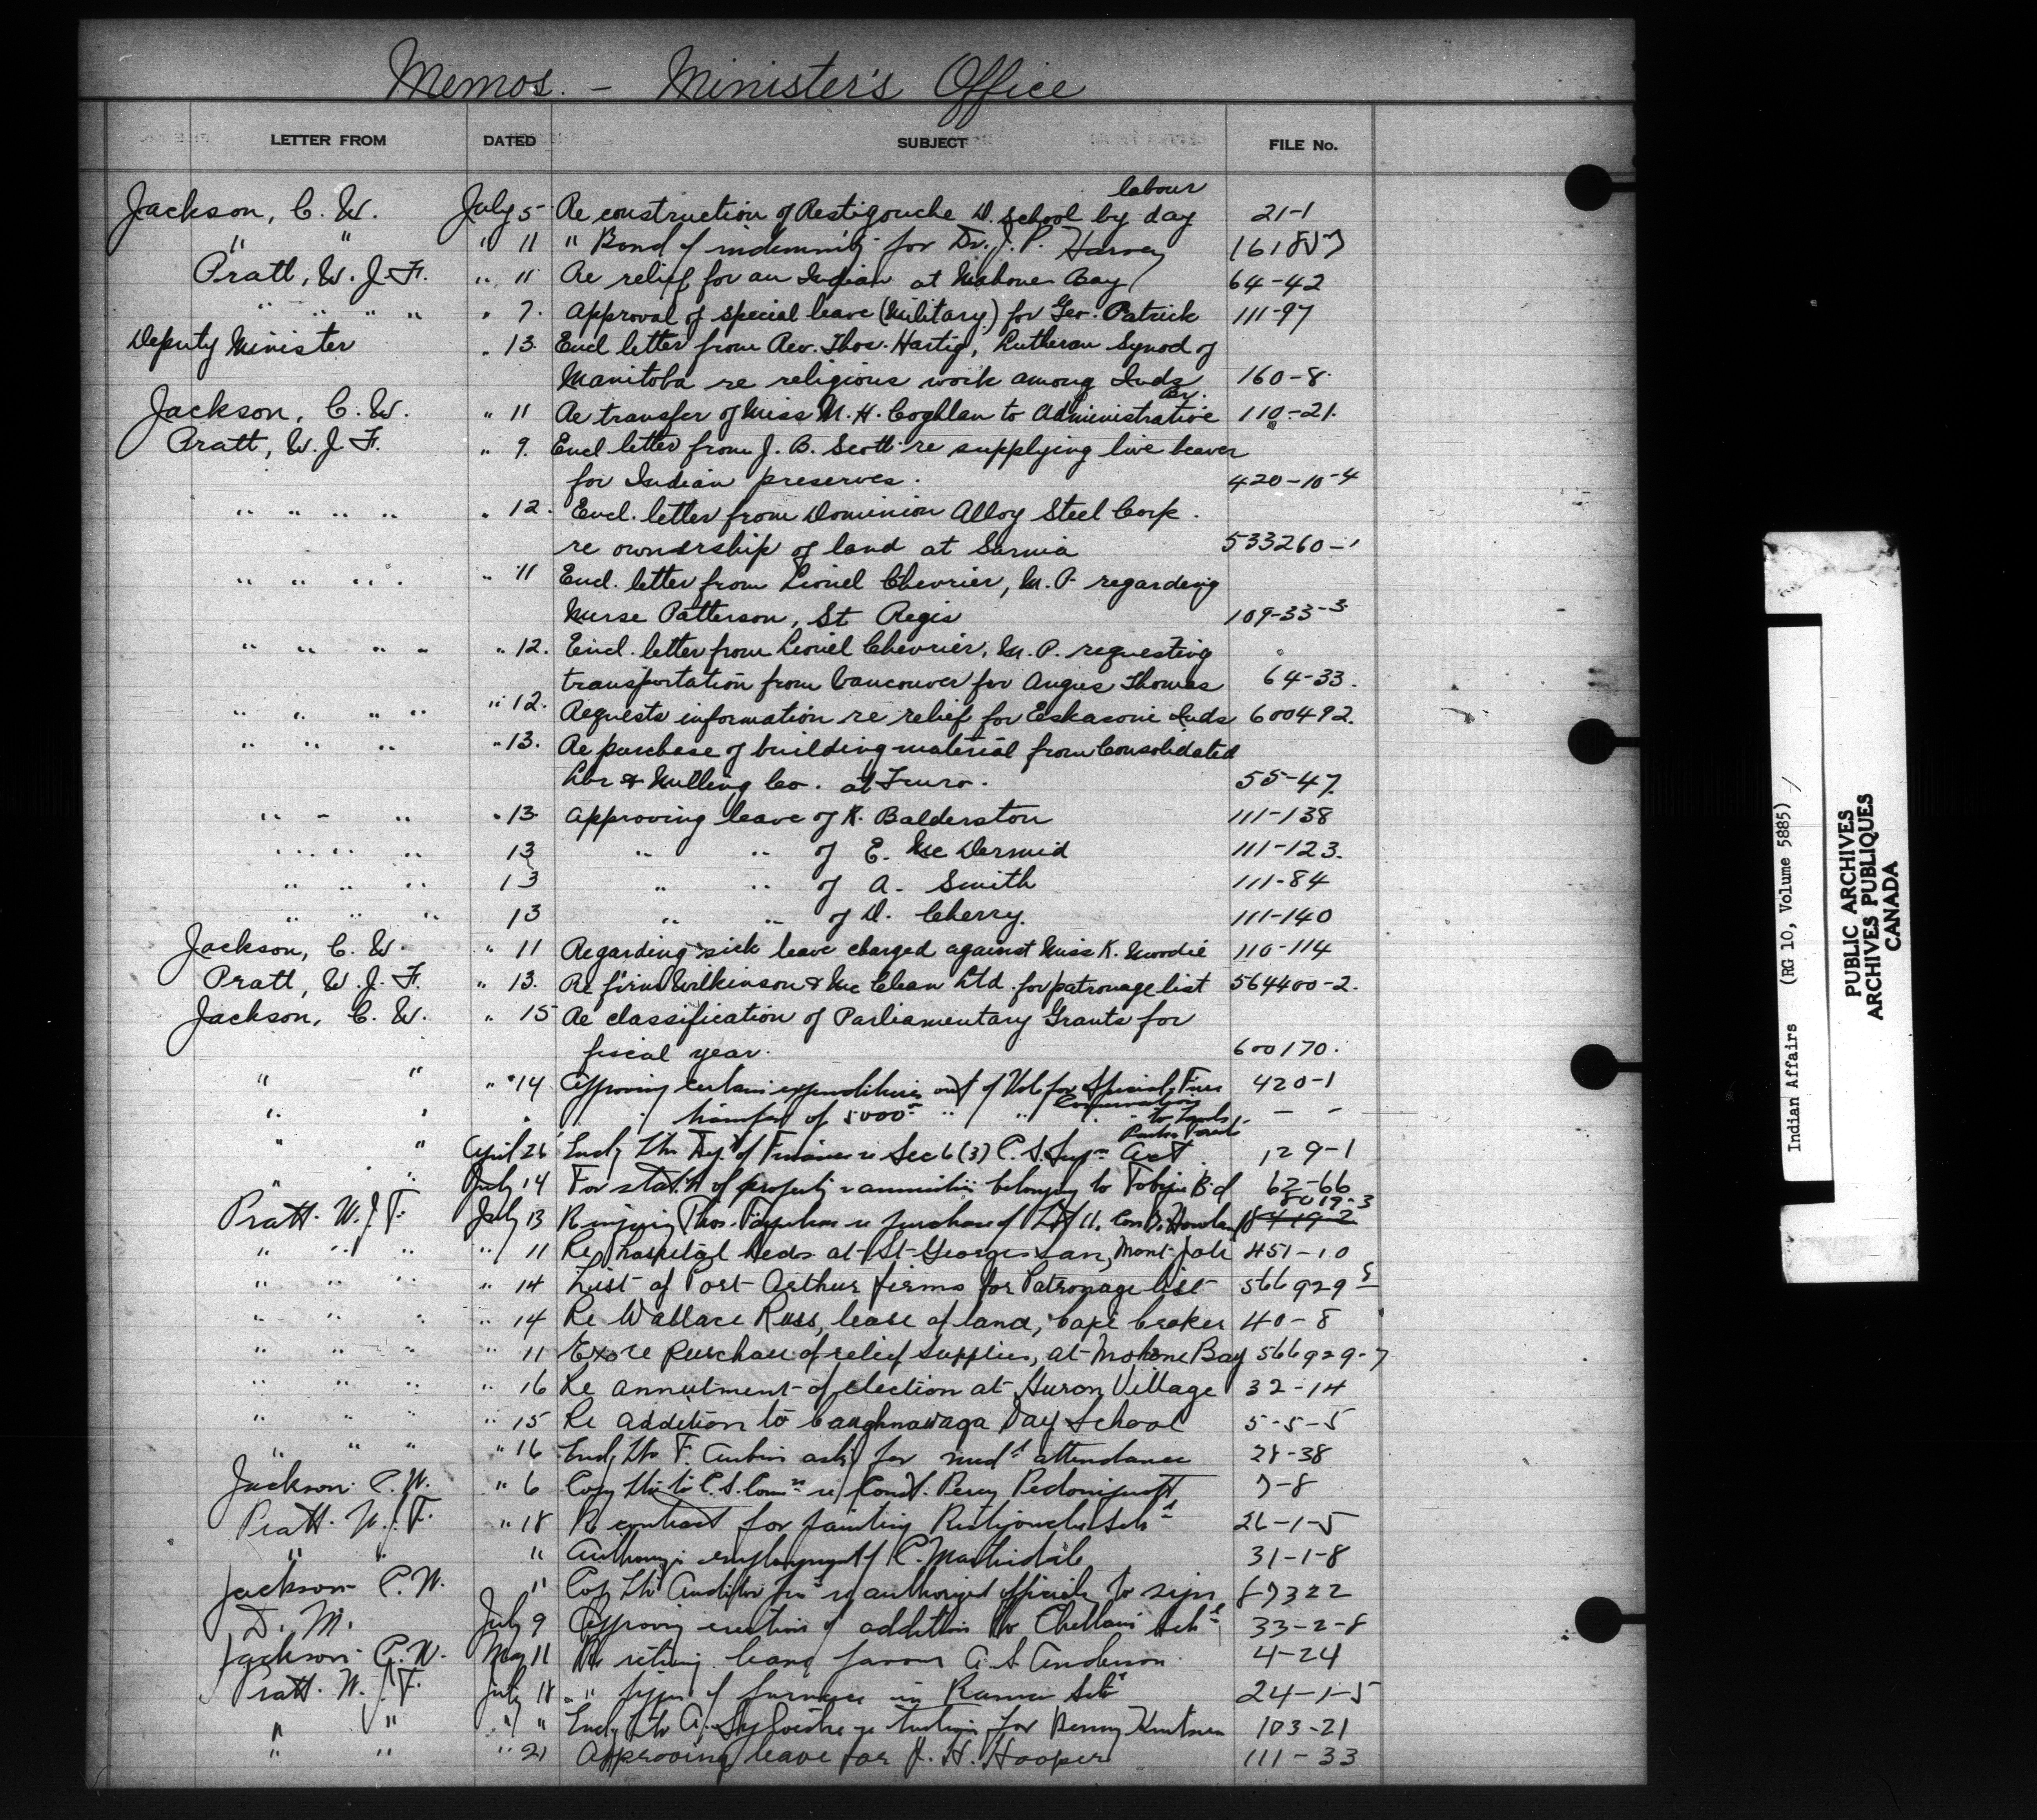 Memos. - Minister's Office
LETTER FROM DATED SUBJECT FILE No.
labour
Jackson, C. W. July 5 Re construction of Restigouche D. School by day 21-1
" " " 11 " Bond of indemnity for Dr. J. P. Harvey 161857
Pratt, W. J. F. " 11 Re relief for an Indian at Mahone Bay 64-42
" " " " " 7. Approval of special leave (Military) for Geo. Patrick 111-97
Deputy Minister " 13. Encl letter from Rev. Thos. Hartig, Lutheran Synod of
Manitoba re religious work among Inds 160-8
Br.
Jackson, C. W. " 11 Re transfer of Miss M. H. Coghlan to Administrative 110-21.
Pratt, W. J. F. " 9. Encl letter from J. B. Scott re supplying live beaver
for Indian preserves. 420-10-4
" " " " " 12. Encl. letter from Dominion Alloy Steel Corp.
re ownership of land at Sarnia 533260-1
" " " " " 11 Encl. letter from Lionel Chevrier, M.P. regarding
Nurse Patterson, St Regis 109-33-3
" " " " " 12. Encl. letter from Lionel Chevrier, M.P. requesting
transportation from Vancouver for Angus Thomas 64-33.
" " " " " 12. Requests information re relief for Eskasoni Inds 600492.
" " " " 13. Re purchase of building material from Consolidated
Lbr & Milling Co. at Truro. 55-47.
" " " " 13 Approving leave of R. Balderston 111-138
" " " " 13 " " of E. McDermid 111-123.
" " " 13 " " of A. Smith 111-84
" " " 13 " " of D. Cherry. 111-140
Jackson, C. W. " 11 Regarding sick leave charged against Miss K. Moodie 110-114
Pratt, W. J. F. " 13. Re firm Wilkinson & McClean Ltd. for patronage list 564400-2.
Jackson, C. W. " 15 Re classification of Parliamentary Grants for
fiscal year. 600170.
" " " 14 Approving certain expenditures out of Vote for Special Fur 420-1
Conservation
" " " transfer of 5000 " " " to Lands - -
Parks Forests
" " April 26 Encl Ltr Dy. of Finance re Sec 6 (3) C. S. Supn Act 129-1
" " July 14 For statn of property & annuities belonging to Bd 62-66
8019-3
Pratt. W. J. F. July 13 Thos. re purchase of Lot 11, Con
" " " " 11 Re hospital beds at St Georges San, Mont-Joli 451-10
" " " " 14 List of Port Arthur firms for Patronage list 566929-8
" " " " 14 Re Wallace Ross, lease of land, Cape Croker 40-8
" " " " 11 re purchase of relief supplies, at Mahone Bay 566929-7
" " " " 16 Re annulment of election at Huron Village 32-14
" " " " 15 Re addition to Caughnawaga Day School 5-5-5
" " " " 16 Encl Ltr F. Aubin ask for medl attendance 28-38
Jackson C. W. " 6 Copy ltr to C. S. Comn re Const. Percy 7-8
Pratt. W. J. F. " 18 Re contract for painting Restigouche Schl 26-1-5
" " " Authorizing employment of C. Martindale 31-1-8
Jackson C. W. " Copy ltr Auditor Genl re authorized officials to sign 67322
D. M. July 9 Approving erection of addition to Schl 33-2-8
Jackson C. W. May 11 Re retiring leave favour A. S. Anderson 4-24
Pratt. W. J. F. July 18 " " of furnace in Rama Schl 24-1-5
" " " " Encl Ltr A. Sylvestre re tuition for 103-21
" " " 21 Approving leave for J. H. Hooper 111-33
Indian Affairs (RG 10, Volume 5885)
PUBLIC ARCHIVES
ARCHIVES PUBLIQUES
CANADA